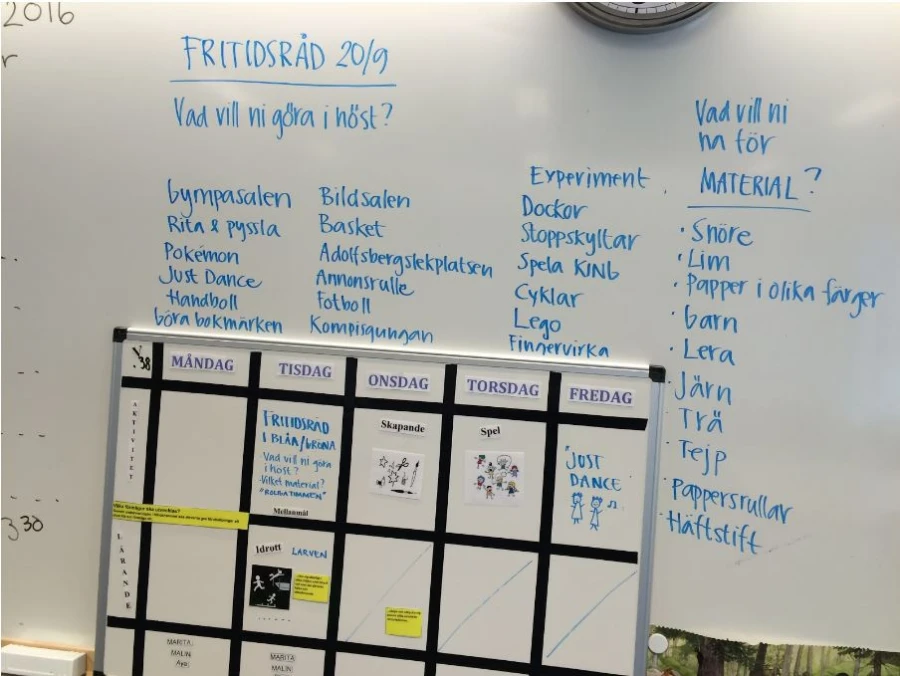 2016
r
FRITIDSRÅD 20/9
Vad vill ni göra i höst?
Gympasalen
Rita & pyssla
Pokémon
Just Dance
Handboll
Göra bokmärken
Bildsalen
Basket
Adolfsbergslekplatsen
Annonsrulle
Fotboll
Kompisgungan
Experiment
Dockor
Stoppskyltar
Spela KING
Cyklar
Lego
Fingervirka
Vad vill ni
ha för
MATERIAL?
· Snöre
· Lim
· Papper i olika färger
· Garn
· Lera
· Järn
· Trä
· Tejp
· Pappersrullar
· Häftstift
330
V.38
MÅNDAG
TISDAG
ONSDAG
TORSDAG
FREDAG
AKTIVITET
FRITIDSRÅD
I BLÅA/GRÖNA
Vad vill ni göra
i höst?
Vilket material?
Mellanmål
Skapande
Spel
"JUST
DANCE
LÄRANDE
Idrott
LARVEN
MARITA
MALIN
MARITA
MALIN